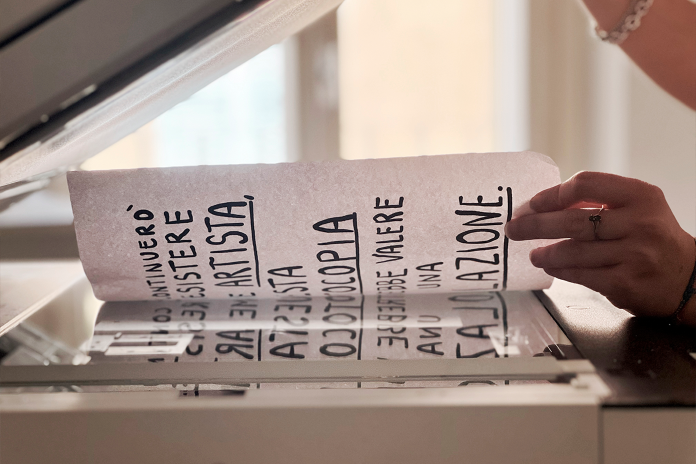 CONTINUERÒ
ESISTERE
ARTISTA,
STA
OCOPIA
BBE VALERE
UNA
LAZIONE.